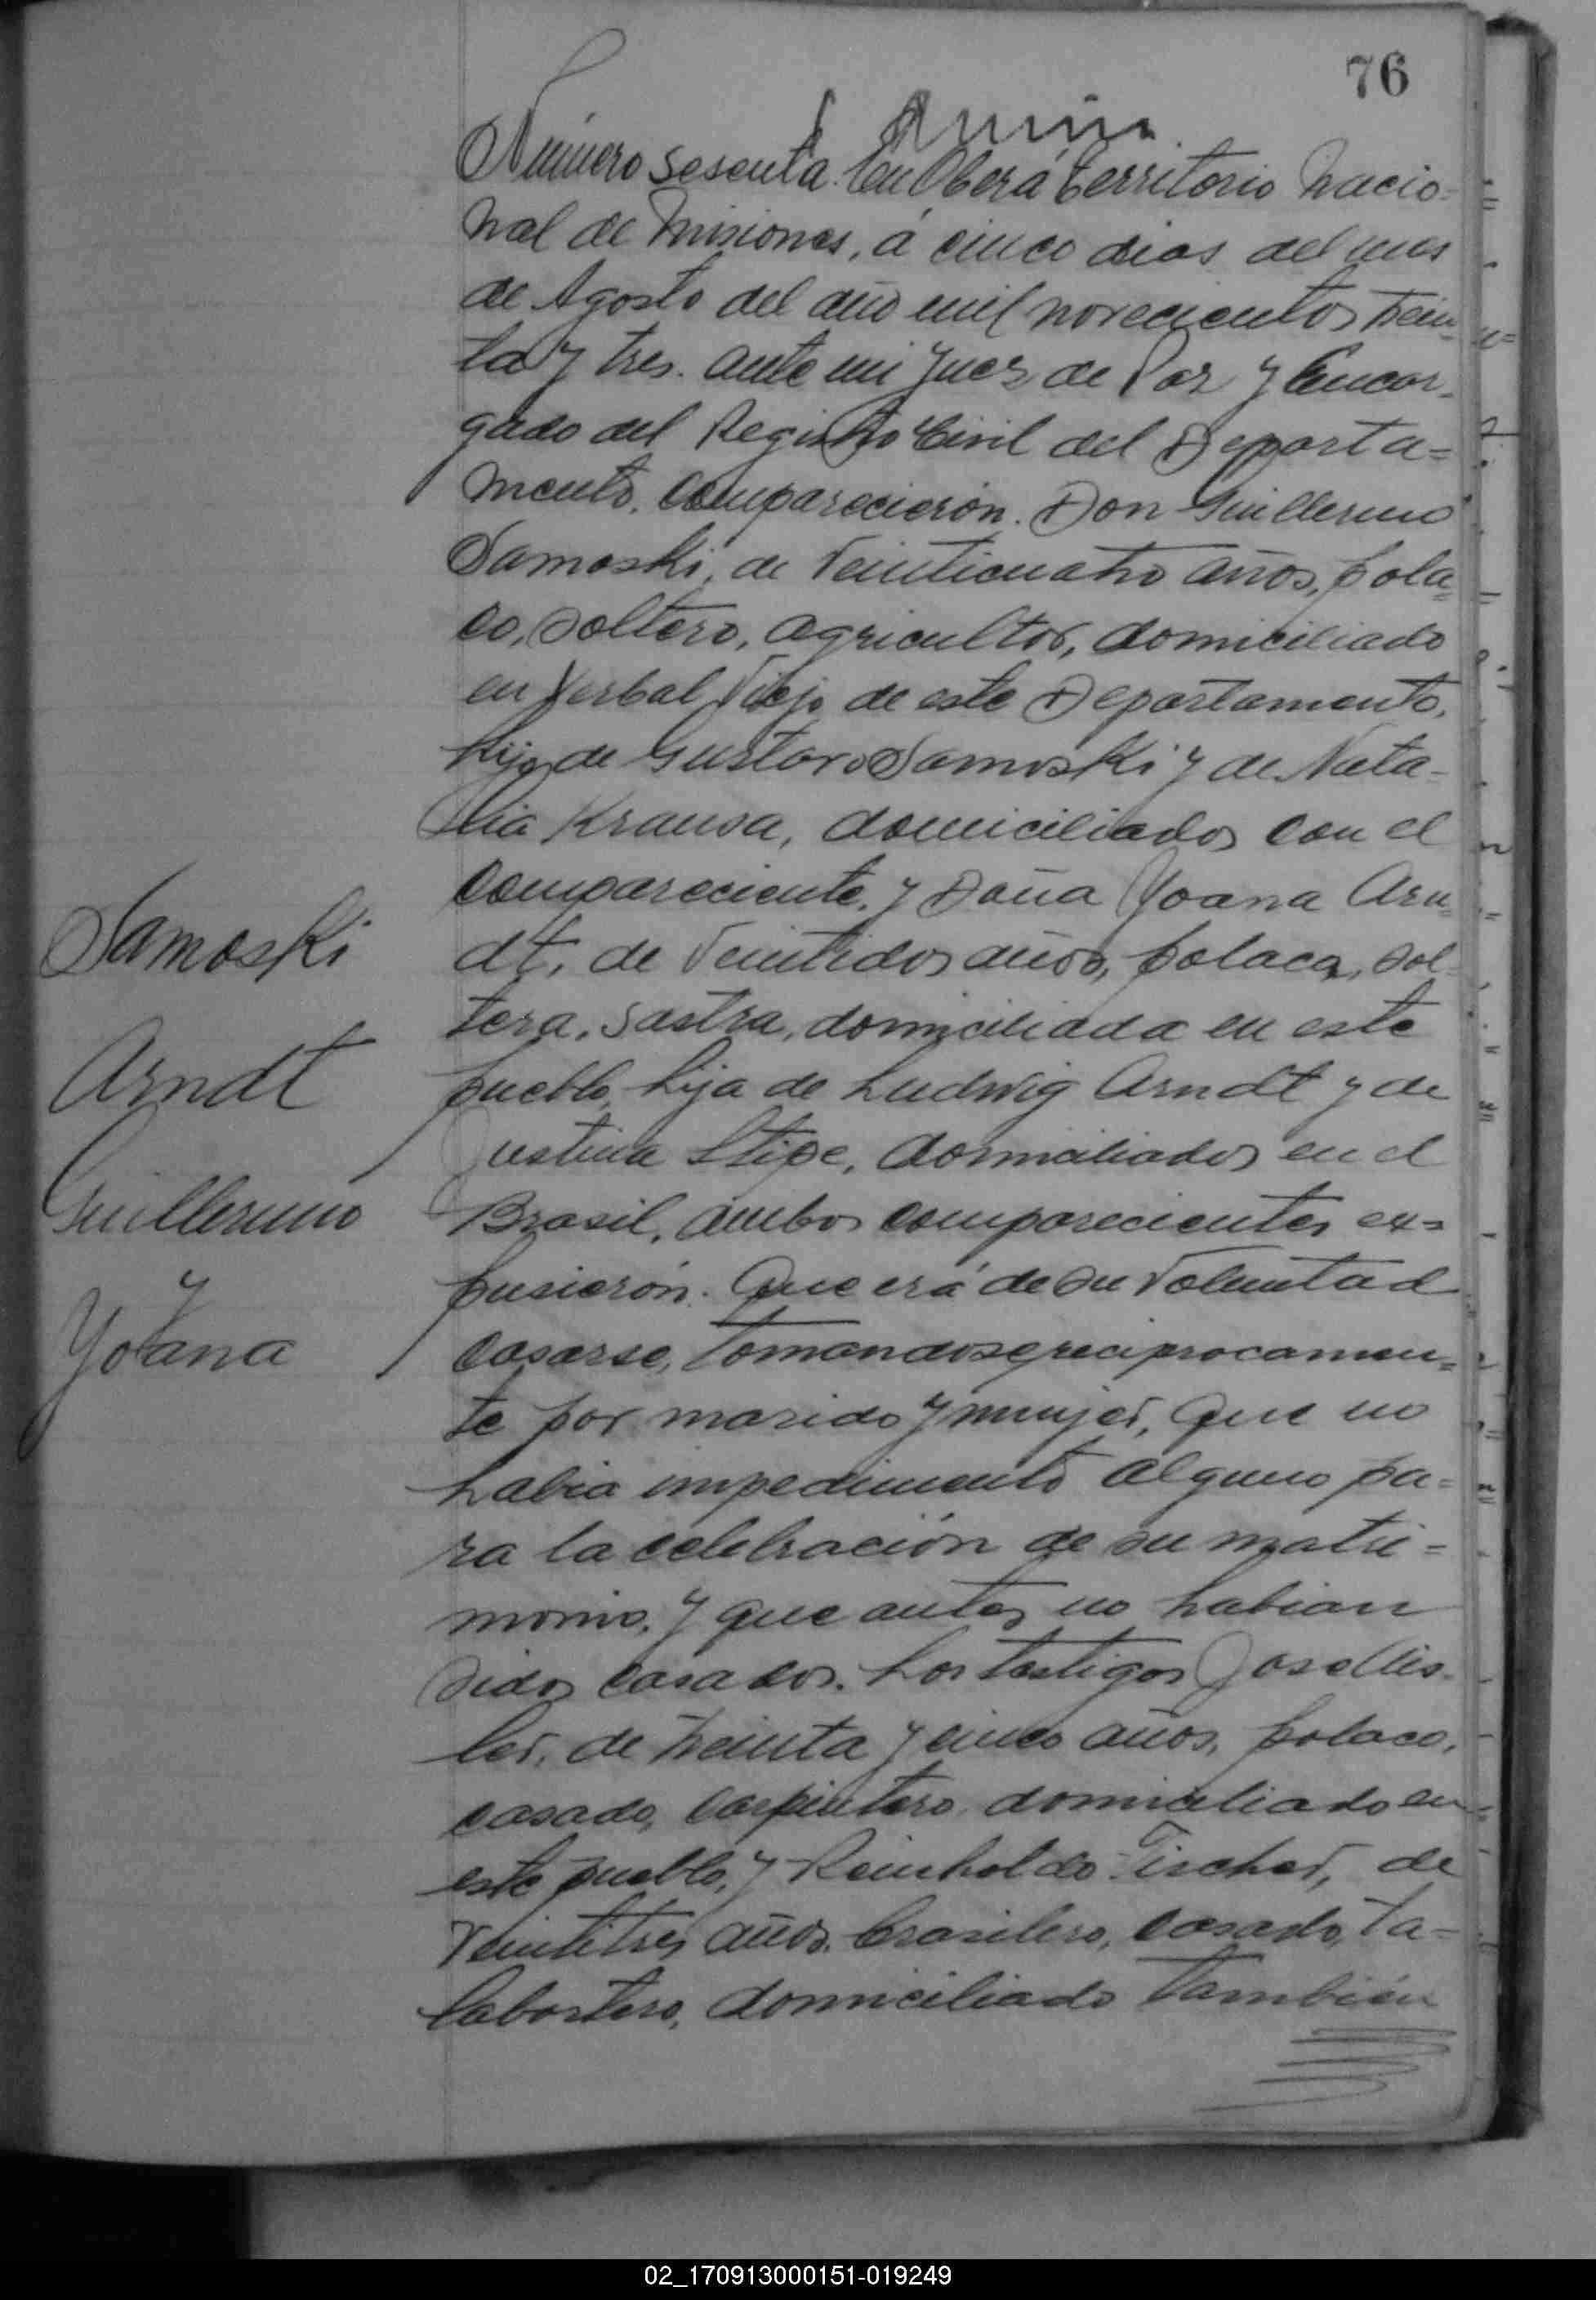 76
Número sesenta. En Oberá territorio Nacio-
nal de Misiones, á cinco dias del mes
de Agosto del año mil novecientos trein-
ta y tres. ante mi Juez de Paz y Encar-
gado del Registro Civil del Departa=
mento, comparecierón. Don Guillermo
Samoski, de veinticuatro años, pola=
co, soltero, agricultor, domiciliado
en Yerbal Viejo de este Departamento,
hijo de Gustavo Samoski y de Nata-
lia Krausa, domiciliados con el
compareciente, y Doña Yoana Arn-
dt, de veintidos años, polaca, sol-
tera, sastra, domiciliada en este
pueblo, hija de Ludwig Arndt y de
Justina Stipe, domiciliados en el
Brasil, ambos comparecientes ex=
pusierón. Que erá de su voluntad
casarse, tomandose reciprocamen=
te por marido y mujer, que no
habia impedimento alguno pa=
ra la celebración de su matri=
monio, y que antes no habian
sidos casados. Los testigos Jose
ler, de treinta y cinco años, polaco,
casado, carpintero, domiciliado en
este pueblo, y Reinholdo Fischer, de
veintitres años, brasilero, casado, ta=
labartero, domiciliado también
Samoski
Arndt
Guillermo
y
Yoana
02_170913000151-019249